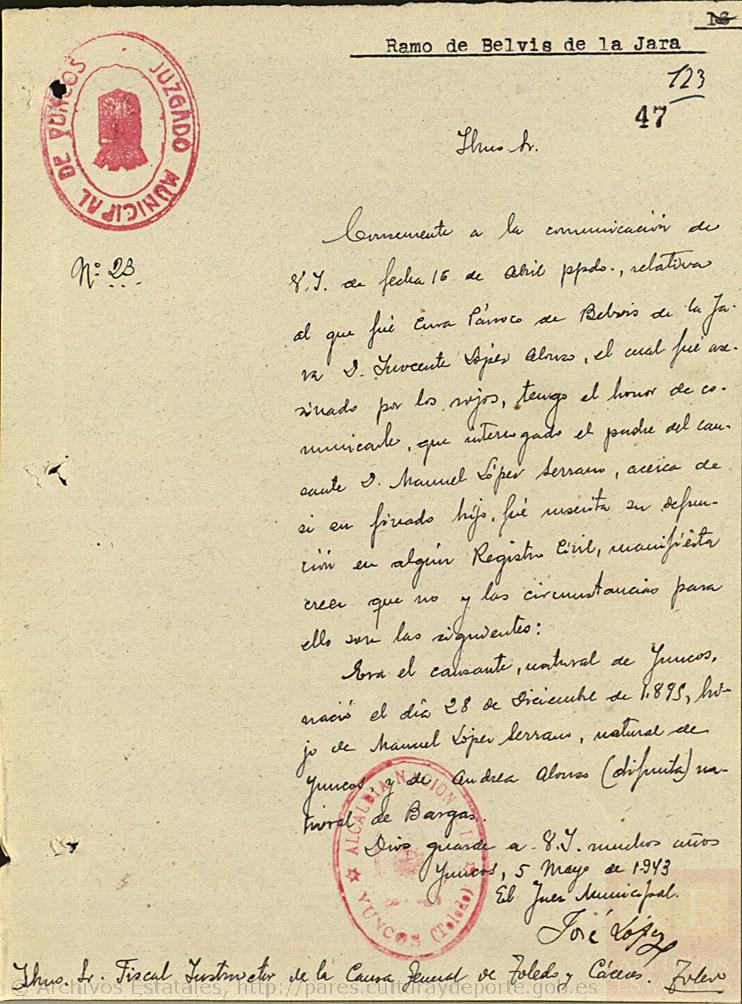 16
Ramo de Belvis de la Jara
123
47
JUZGADO MUNICIPAL DE YUNCOS
Ilmo. Sr.
Nº 23
Consecuente a la comunicación de
V.I. de fecha 16 de Abril ppdo., relativa
al que fué Cura Párroco de Belvis de la Ja-
ra D. Inocente López Alonso, el cual fué ase-
sinado por los rojos, tengo el honor de co-
municarle, que interrogado el padre del cau-
sante D. Manuel López Serrano, acerca de
si su finado hijo, fué inscrita su defun-
ción en algún Registro Civil, manifiesta
creer que no y las circunstancias para
ello son las siguientes:
Era el causante, natural de Yuncos,
nació el día 28 de Diciembre de 1.895, hi-
jo de Manuel López Serrano, natural de
Yuncos, y de Andrea Alonso (difunta) na-
tural de Bargas.
Dios guarde a V.I. muchos años
Yuncos, 5 Mayo de 1943
El Juez Municipal.
José López
ALCALDIA NACIONAL DE YUNCOS (Toledo)
Ilmo. Sr. Fiscal Instructor de la Causa General de Toledo y Cáceres. Toledo
© Archivos Estatales, http://pares.culturaydeporte.gob.es